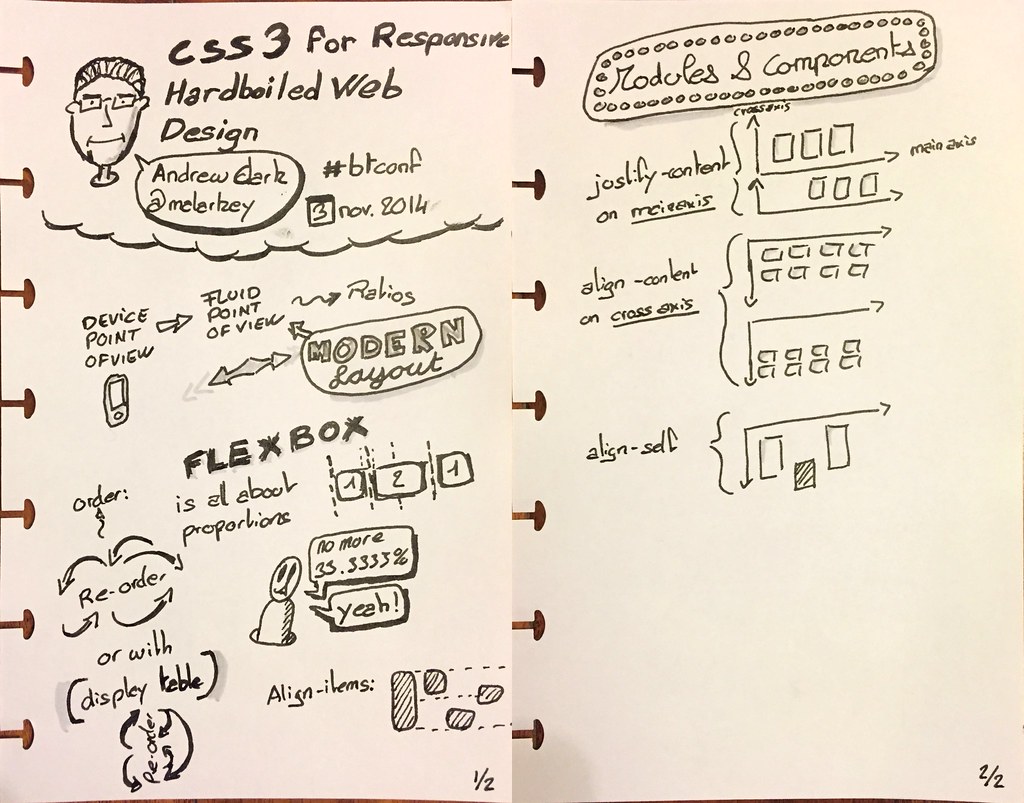 CSS3 for Responsive
Hardboiled Web
Design
Andrew Clark
@malarkey
#btconf
3 nov. 2014
DEVICE
POINT
OF VIEW
FLUID
POINT
OF VIEW
Ratios
MODERN
Layout
FLEXBOX
is all about
proportions
1 2 1
order:
Re-order
no more
33.3333%
yeah!
or with
(display table)
Re-order
Align-items:
1/2
Modules & Components
cross axis
main axis
justify-content
on main axis
align-content
on cross axis
align-self
2/2